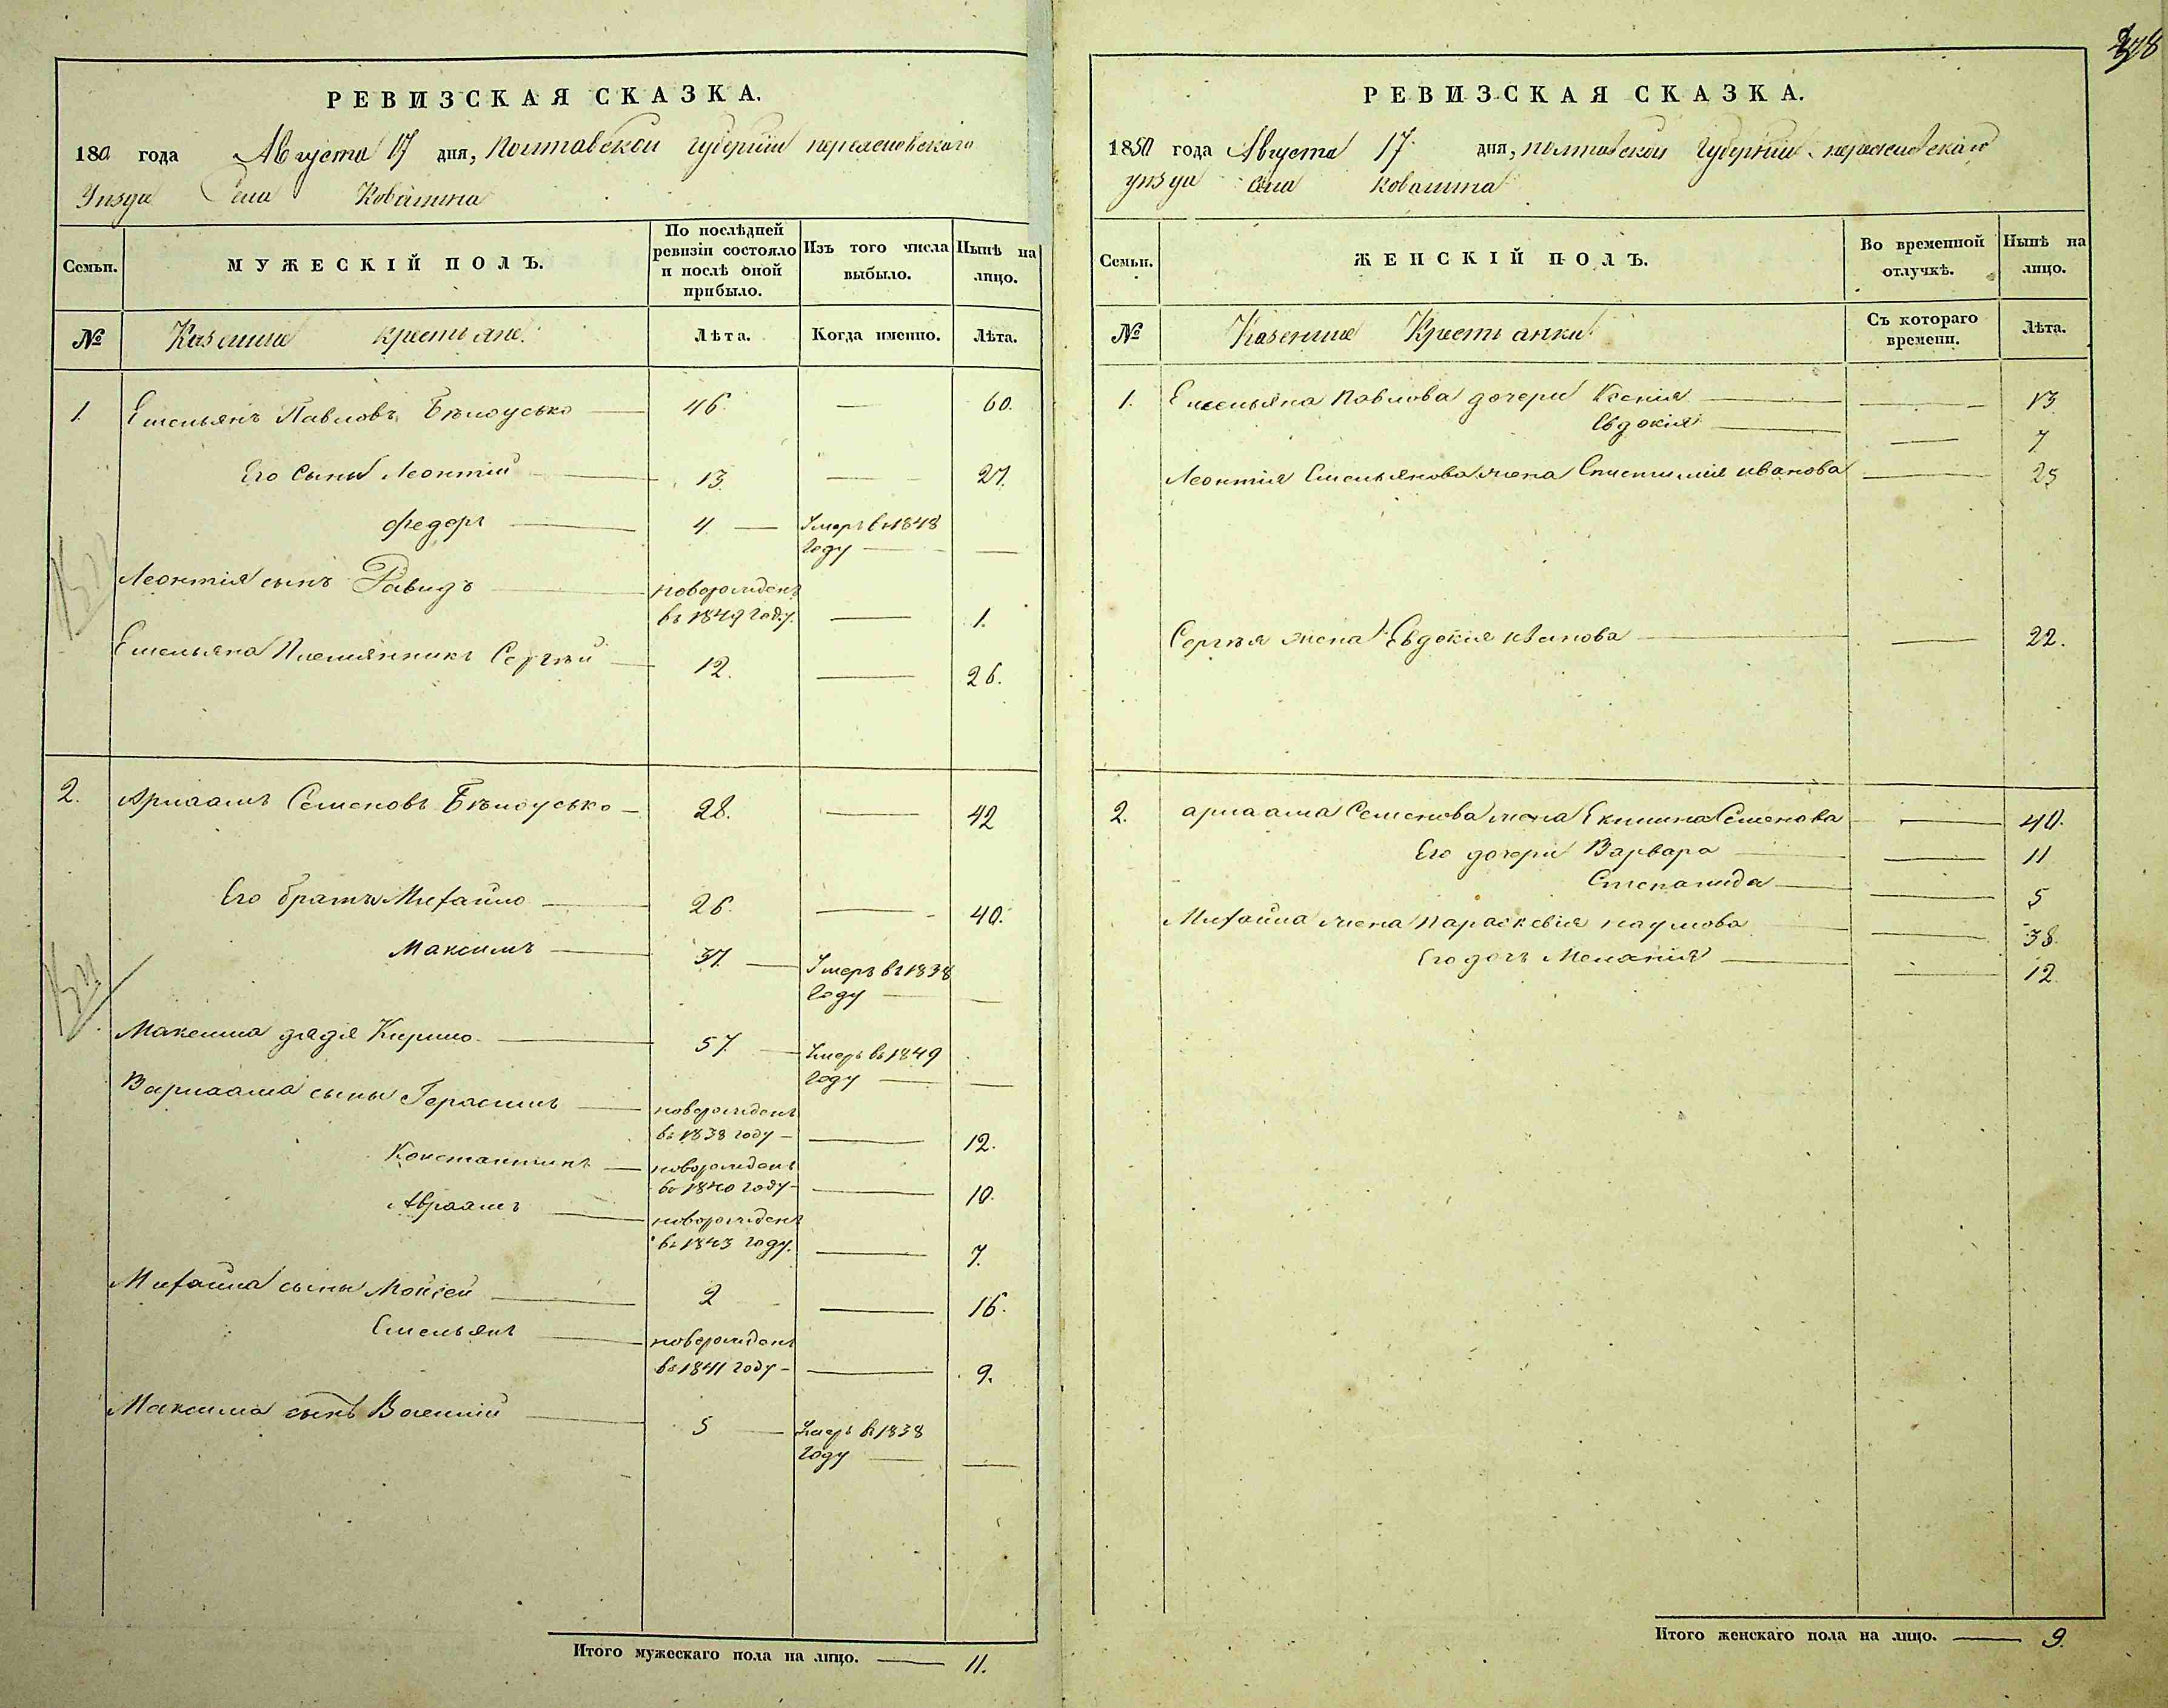 378
РЕВИЗСКАЯ СКАЗКА.
1850 года Августа 17 дня, Полтавской губернии переяславского
Уезда Села Ковалина
Семьи.
МУЖЕСКІЙ ПОЛЪ.
По послѣдней ревизіи состояло и послѣ оной прибыло.
Изъ того числа выбыло.
Нынѣ на лицо.
№ Казенные крестьяне.
Лѣта.
Когда именно.
Лѣта.
1. Емельянъ Павловъ Бѣлоусько — 46. — 60.
Его сыны Леонтій — 13. — 27.
Федоръ — 4. — Умеръ въ 1848
году — —
Леонтія сынъ Давидъ — новорожденъ
въ 1849 году. — 1.
Емельяна Племянникъ Сергѣй — 12. — 26.
2. Арлаамъ Семеновъ Бѣлоусько — 28. — 42
Его братъ Михайло — 26. — 40.
Максимъ — 37. — Умеръ въ 1838
году — —
Максима дядя Кирило — 57. — Умеръ въ 1849
году — —
Варлаама сыны Герасимъ — новорожденъ
въ 1838 году — — 12.
Константинъ — новорожденъ
въ 1840 году — — 10.
Авраамъ — новорожденъ
въ 1843 году. — 7.
Михайла сыны Мойсей — 2 — 16.
Емельянъ — новорожденъ
въ 1841 году — — 9.
Максима сынъ Василій — 5 — Умеръ въ 1838
году — —
Итого мужескаго пола на лицо. — 11.
РЕВИЗСКАЯ СКАЗКА.
1850 года Августа 17 дня, полтавской Губерніи переяславскаго
уезда села ковалина
Семьи.
ЖЕНСКІЙ ПОЛЪ.
Во временной отлучкѣ.
Нынѣ на лицо.
№ Казенные Крестьянки
Съ котораго времени.
Лѣта.
1. Емельяна Павлова дочери Ксенія — — 13.
Евдокія — — 7
Леонтія Емельянова жена иванова — 25
Сергѣя жена Евдокія иванова — — 22.
2. арлаама Семенова жена Екилина Семенова — 40.
Его дочери Варвара — — 11
Степанида — — 5
Михайла жена Параскевія наумова — — 38.
Его дочъ Меланія — — 12.
Итого женскаго пола на лицо. — 9.